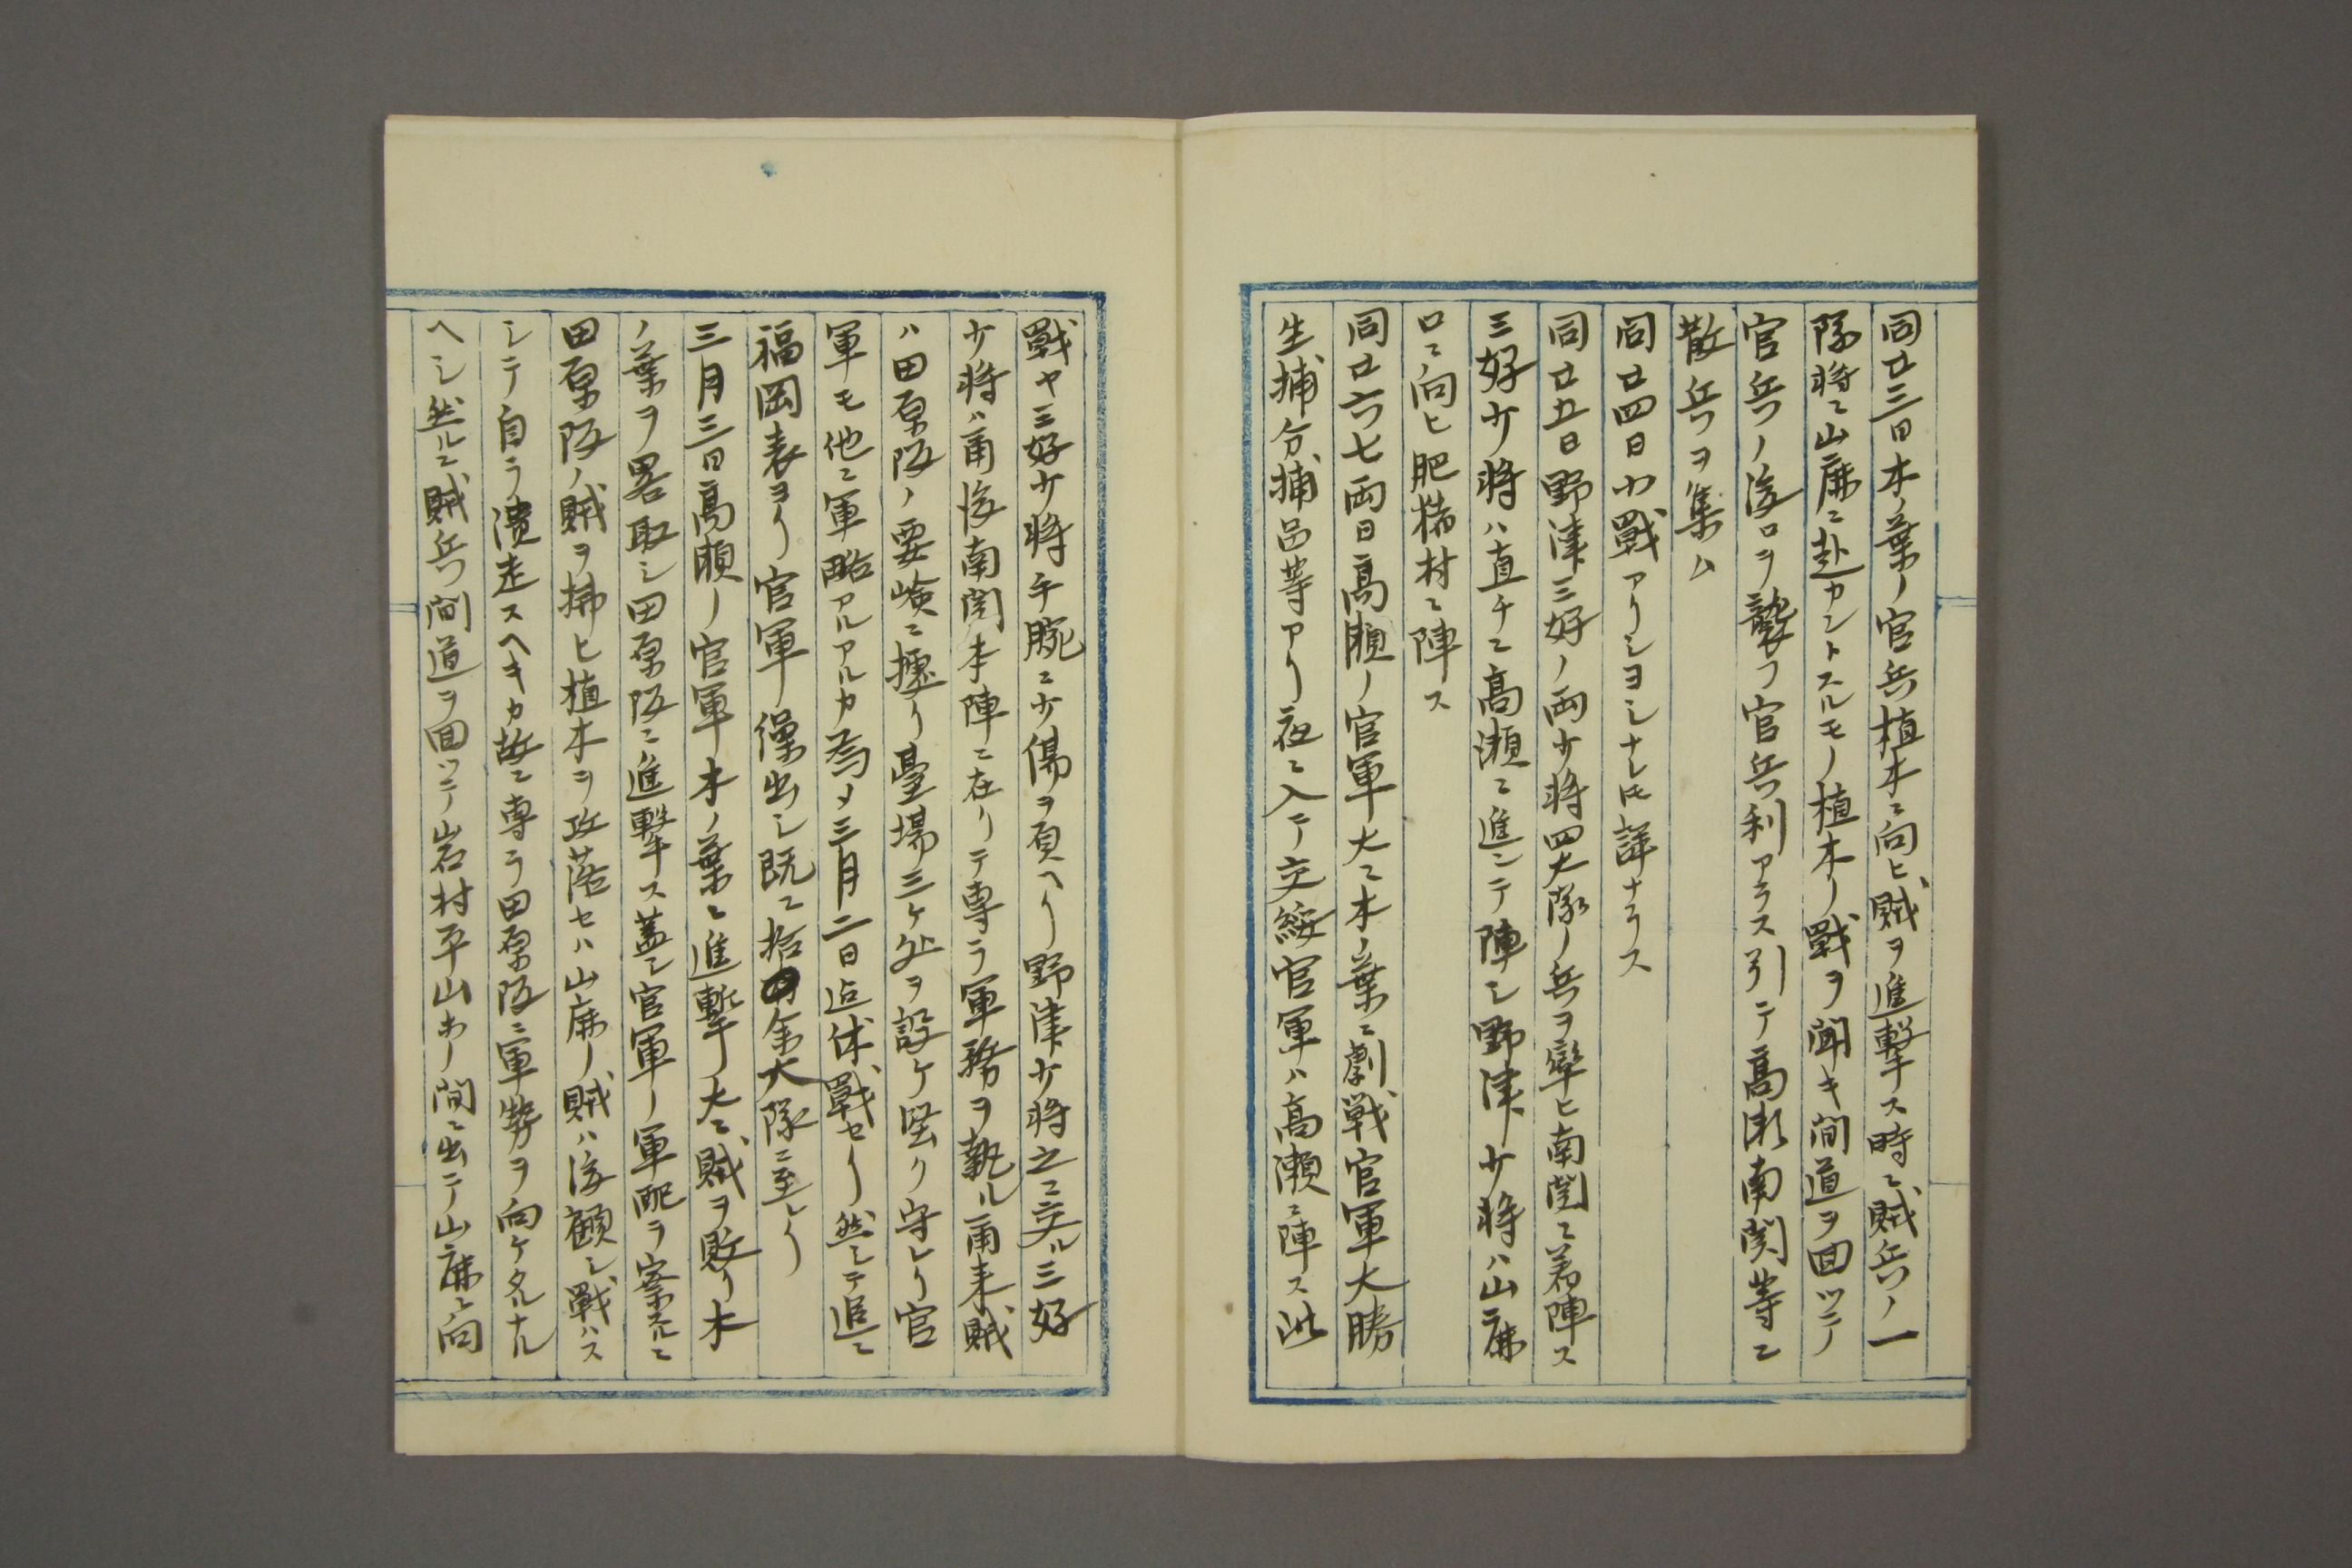 同廿三日木ノ葉ノ官兵植木ニ向ヒ賊ヲ進撃ス時ニ賊兵ノ一
隊将ニ山鹿ニ赴カントスルモノ植木ノ戰ヲ聞キ間道ヲ回ツテ
官兵ノ後口ヲ襲フ官兵利アラス引テ高瀬南関等ニ
散兵ヲ集ム
同廿四日小戰アリシヨシナレ𪜈詳ナラス
同廿五日野津三好ノ両少将四大隊ノ兵ヲ率ヒ南関ニ着陣ス
三好少将ハ直チニ高瀬ニ進ンテ陣シ野津少将ハ山鹿
口ニ向ヒ肥猪村ニ陣ス
同廿六七両日高瀬ノ官軍大ニ木ノ葉ニ劇戦官軍大勝
生捕分捕品等アリ夜ニ入テ交綏官軍ハ高瀬ニ陣ス此
戰ヤ三好少将手腕ニ少傷ヲ負ヘリ野津少将之ニ交ル三好
少将ハ甭後南関本陣ニ在リテ専ラ軍務ヲ執ル甭来賊
ハ田原阪ノ要嶮ニ據リ臺場三ケ処ヲ設ケ堅ク守レリ官
軍モ他ニ軍略アルアルカ為メ三月二日迠休戰セリ然シテ追ニ
福岡表ヨリ官軍繰出シ既ニ拾余大隊ニ至レリ
三月三日高瀬ノ官軍木ノ葉ニ進撃大ニ賊ヲ敗リ木
ノ葉ヲ畧取シ田原阪ニ進撃ス蓋シ官軍ノ軍配ヲ察スルニ
田原阪ノ賊ヲ掃ヒ植木ヲ攻落セハ山鹿ノ賊ハ後顧シ戰ハス
シテ自ラ潰走スヘキカ故ニ専ラ田原阪ニ軍勢ヲ向ケタルナル
ヘシ然ルニ賊兵間道ヲ回ツテ岩村平山ホノ間ニ出テ山鹿ニ向